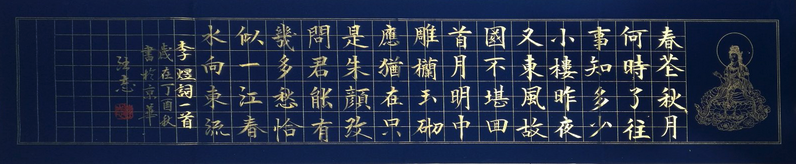 春花秋月
何時了往
事知多少
小樓昨夜
又東風故
國不堪回
首月明中
雕欄玉砌
應猶在只
是朱顏改
問君能有
幾多愁恰
似一江春
水向東流
李煜詞一首
歲在丁酉秋
書於京華